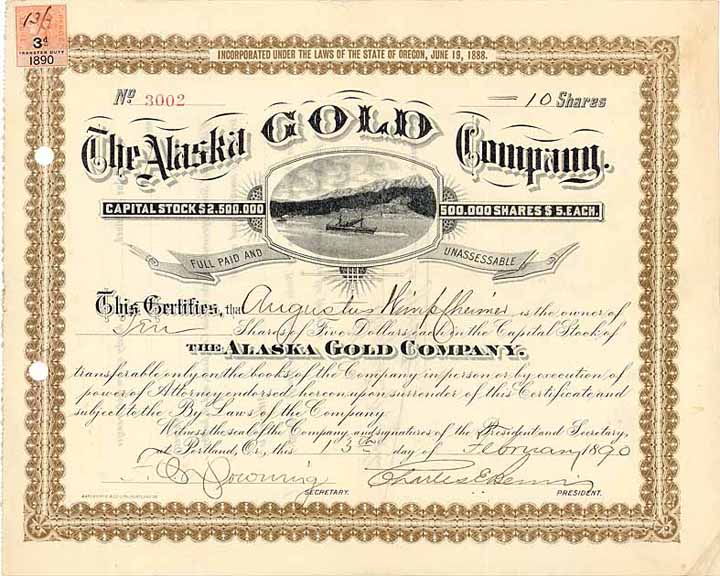 13/3
3d
TRANSFER DUTY
1890
INCORPORATED UNDER THE LAWS OF THE STATE OF OREGON, JUNE 19, 1888.
No 3002
10 Shares
The Alaska GOLD Company.
CAPITAL STOCK $2.500.000
500.000 SHARES $5. EACH.
FULL PAID AND
UNASSESSABLE
This Certifies, that Augustus Kempfheimer is the owner of
Ten Shares of Five Dollars each in the Capital Stock of
THE ALASKA GOLD COMPANY.
transferable only on the books of the Company in person or by execution of
power of Attorney endorsed hereon upon surrender of this Certificate and
subject to the By Laws of the Company.
Witness the seal of the Company and signatures of the President and Secretary,
at Portland, Or., this 13th day of February 1890
Downing
Charles E.
SECRETARY.
PRESIDENT.